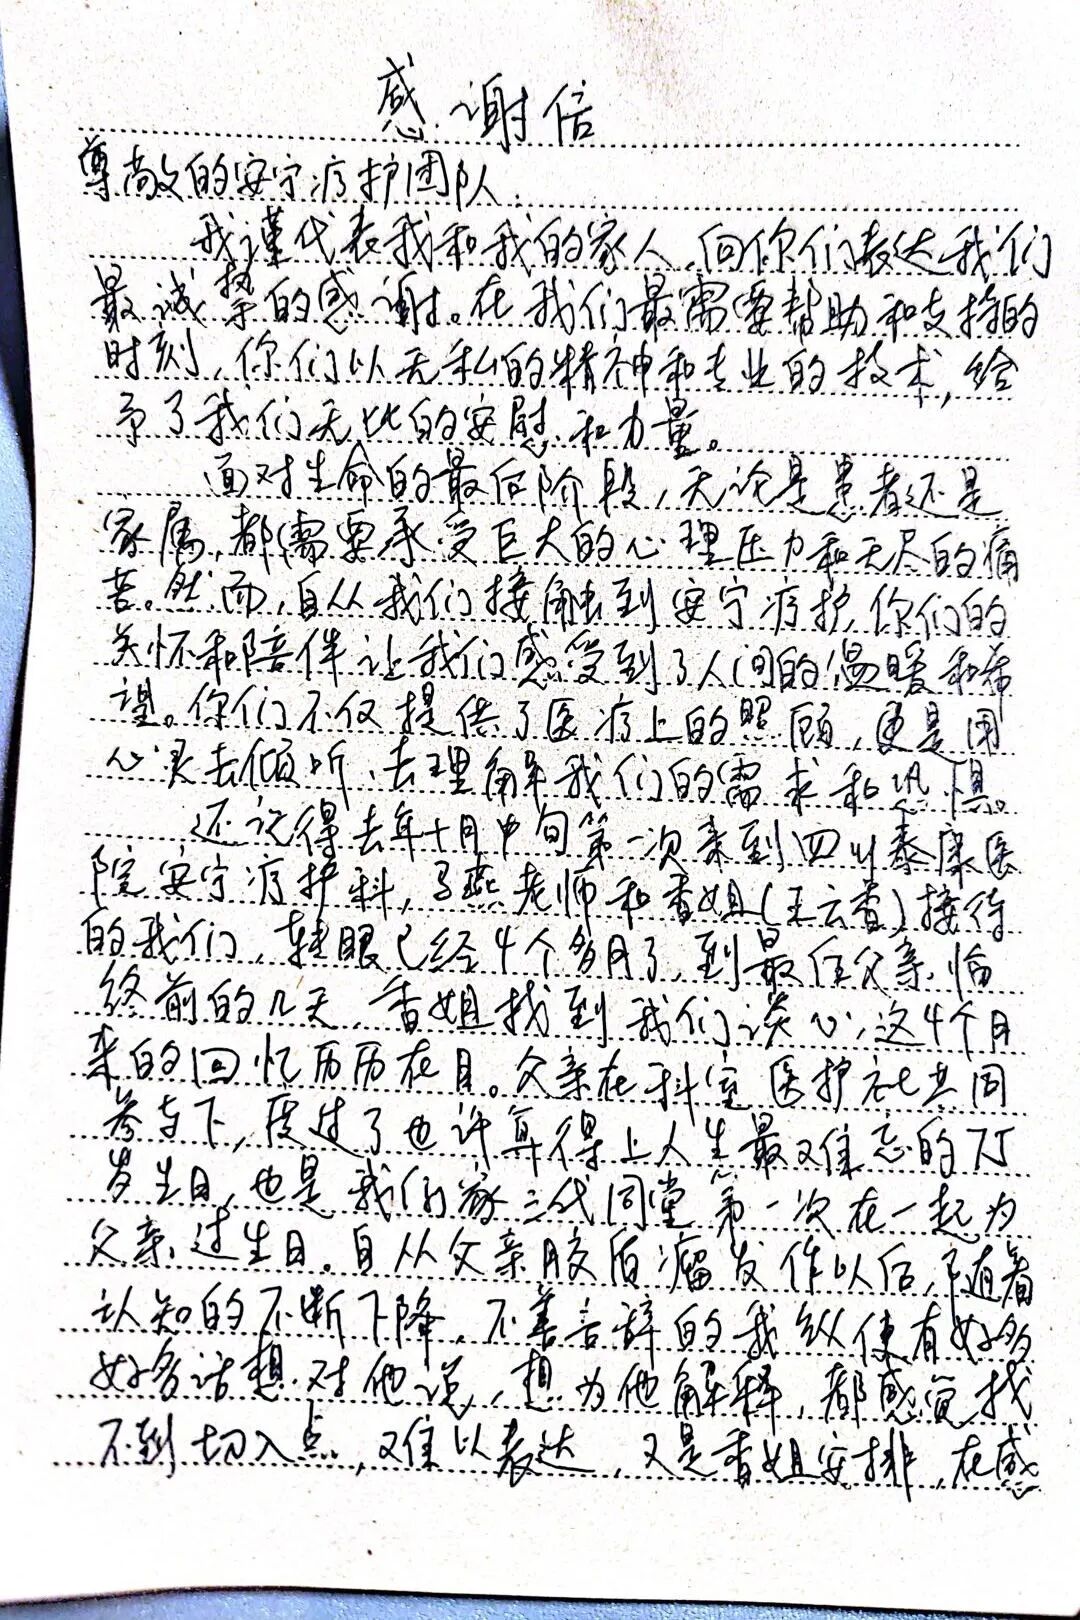 感谢信
尊敬的安宁疗护团队:
我谨代表我和我的家人,向你们表达我们
最诚挚的感谢。在我们最需要帮助和支持的
时刻,你们以无私的精神和专业的技术,给
予了我们无比的安慰和力量。
面对生命的最后阶段,无论是患者还是
家属,都需要承受巨大的心理压力和无尽的痛
苦。然而,自从我们接触到安宁疗护,你们的
关怀和陪伴让我们感受到了人间的温暖和希
望。你们不仅提供了医疗上的照顾,更是用
心灵去倾听、去理解我们的需求和恐惧。
还记得去年十月中旬第一次来到四川泰康医
院安宁疗护科,燕老师和香姐(王云香)接待
的我们,转眼已经4个多月了,到最后父亲临
终前的几天,香姐找到我们谈心,这4个月
来的回忆历历在目。父亲在科室医护社共同
参与下,度过了也许算得上人生最难忘的75
岁生日,也是我们家三代同堂第一次在一起为
父亲过生日。自从父亲胶质瘤发作以后,随着
认知的不断下降,不善言辞的我纵使有好多
好多话想对他说,想为他解释,都感觉找
不到切入点,难以表达,又是香姐安排,在感